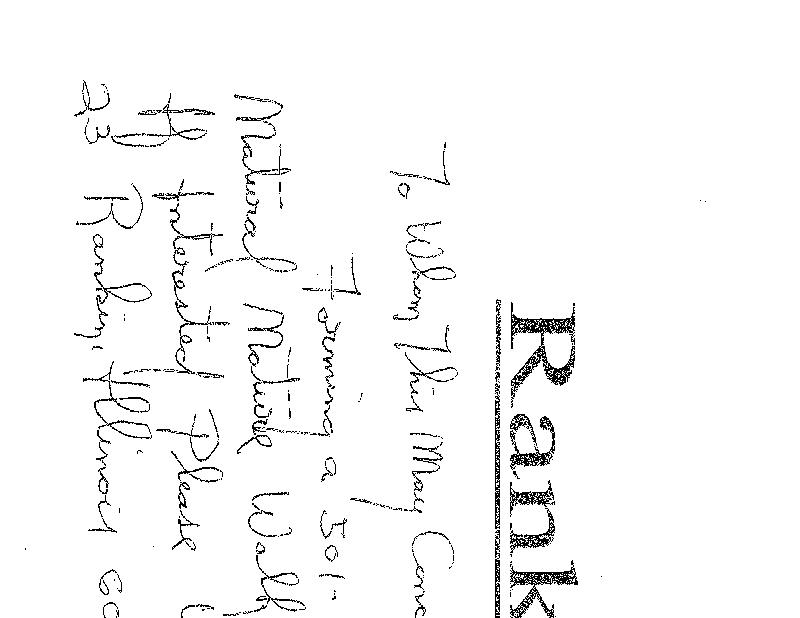 Rank
To Whom This May Conc
Forming a 501-
Natural Nature Walk
If Interested Please
23 Rankin, Illinois 60